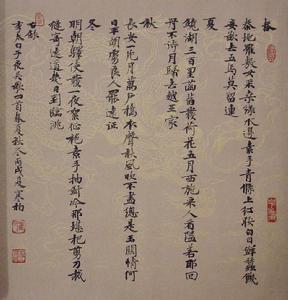 春
秦地羅敷女采桑綠水邊素手青條上紅妝白日鮮蠶饑
妾欲去五馬莫留連
夏
鏡湖三百里菡萏發荷花五月西施采人看隘若耶回
舟不待月歸去越王家
秋
長安一片月萬戶搗衣聲秋風吹不盡總是玉關情何
日平胡虜良人罷遠征
冬
明朝驛使發一夜絮征袍素手抽針冷那堪把剪刀裁
縫寄遠道幾日到臨洮
右錄
李太白子夜吳歌四首春夏秋冬丙戌夏寒柏